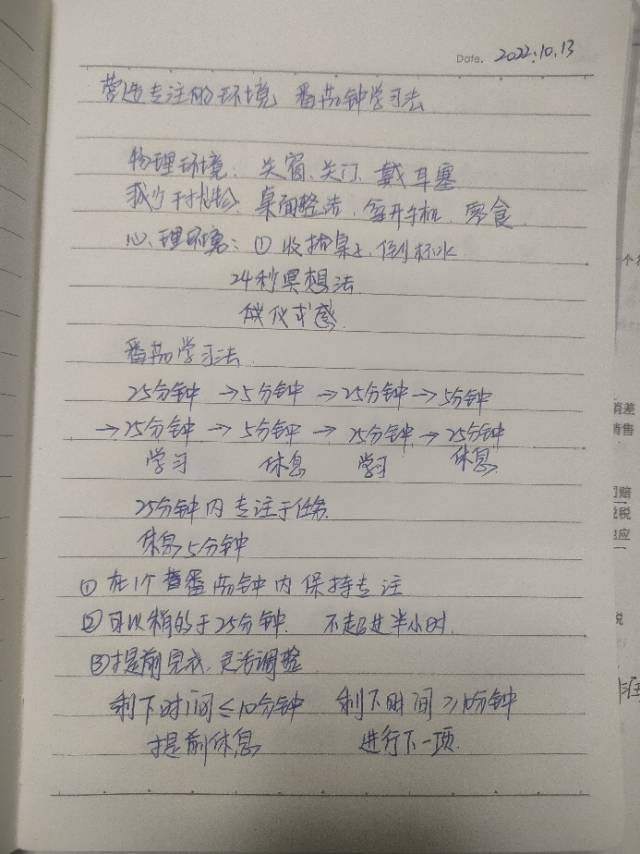 Date. 2022.10.13
营造专注的环境 番茄钟学习法
物理环境：关窗、关门、戴耳塞
减少干扰物、桌面整洁、手机、零食
心理环境：① 收拾桌上、倒杯水
24秒冥想法
仪式感
番茄学习法
25分钟 →5分钟 →25分钟 →5分钟
→25分钟 → 5分钟 → 25分钟 → 25分钟
学习 休息 学习 休息
25分钟内专注于任务
休息5分钟
① 在1个番茄钟内保持专注
② 可以稍的于25分钟. 不超过半小时.
③ 提前完成、灵活调整
剩下时间≤10分钟 剩下时间≥10分钟
提前休息 进行下一项
个
销差
销售
税